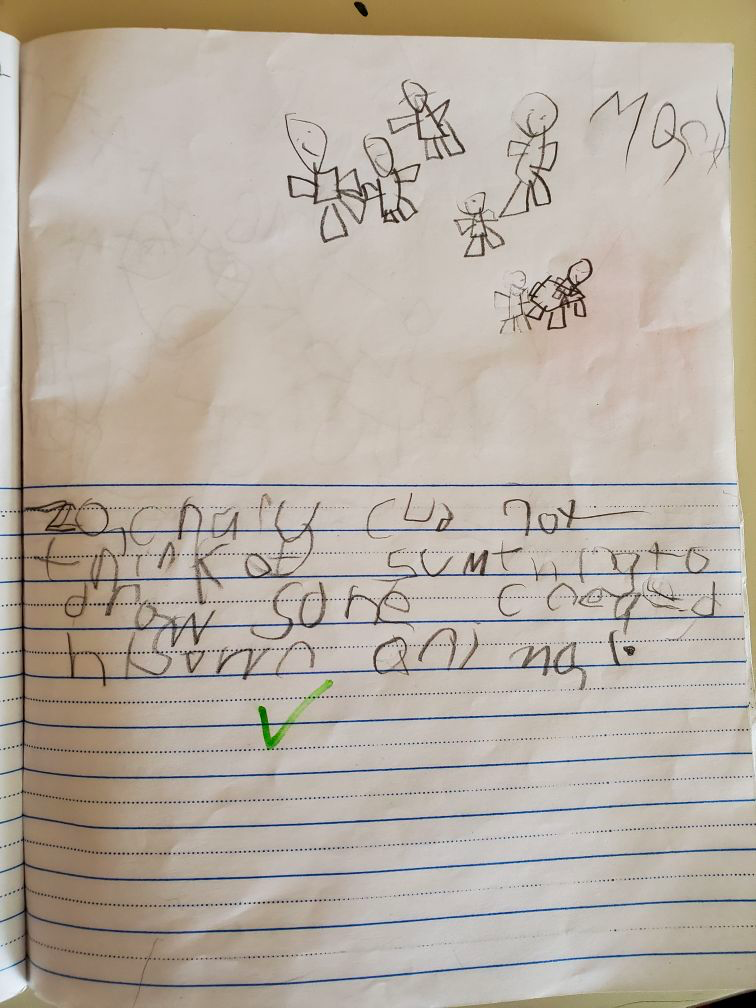 cud not
think of sumthing to
draw so he creatid
his own animal.